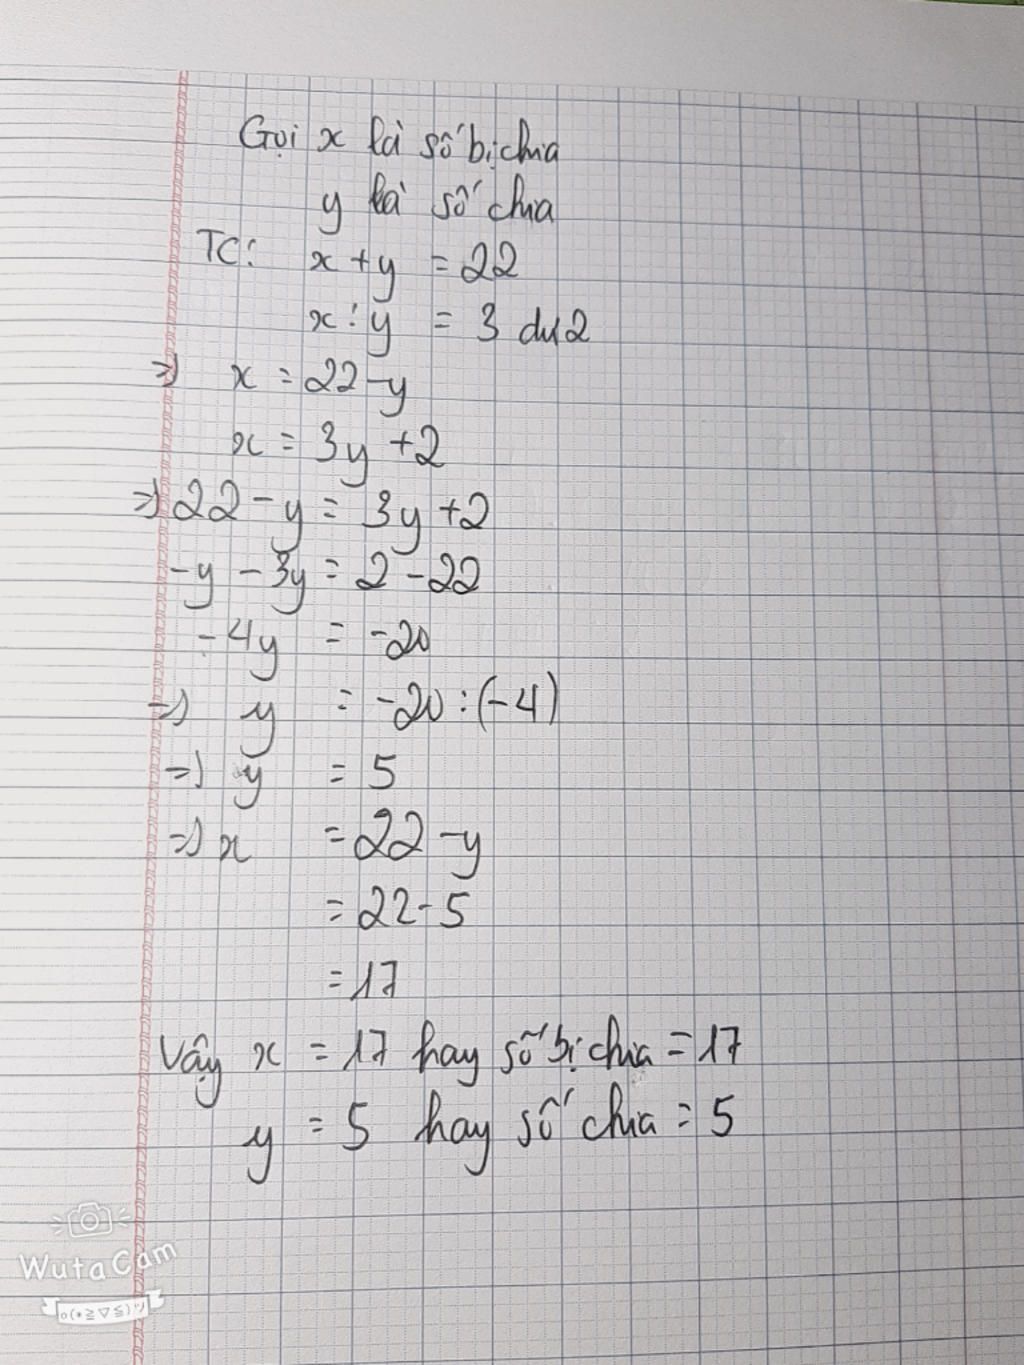 Gọi x là số bị chia
y là số chia
TC: x + y = 22
x : y = 3 dư 2
=> x = 22 - y
x = 3y + 2
=> 22 - y = 3y + 2
- y - 3y = 2 - 22
- 4y = -20
=> y = -20 : (-4)
=> y = 5
=> x = 22 - y
= 22 - 5
= 17
Vậy x = 17 hay số bị chia = 17
y = 5 hay số chia = 5
WutaCam